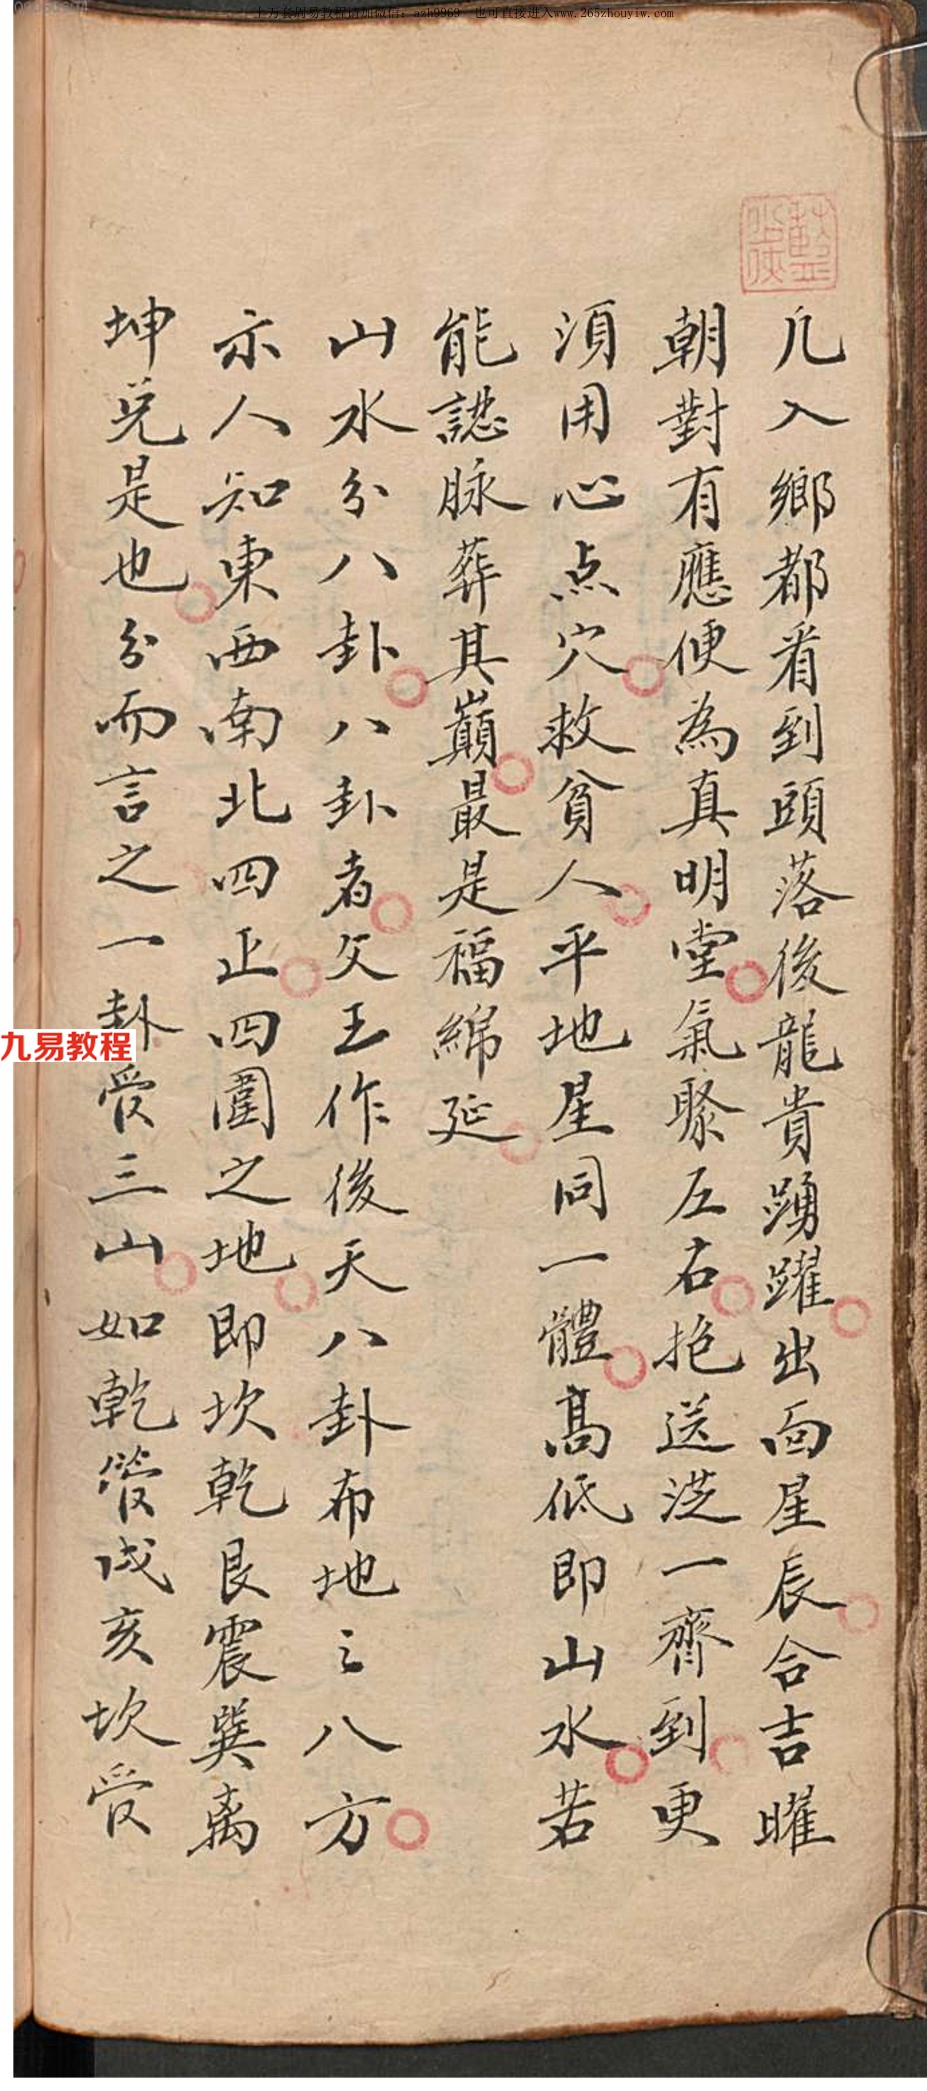 凢入鄉都看到頭落後龍貴踴躍出面星辰合吉曜
朝對有應便為真明堂氣聚左右抱送泛一齊到更
須用心点穴救貧人平地星同一體高低即山水若
能認脉葬其巔最是福綿延
山水分八卦八卦者文王作後天八卦布地之八方
示人知東西南北四正四圍之地即坎乾艮震巽离
坤兑是也分而言之一卦受三山如乾管戌亥坎受
九易教程
www.265zhouyiw.com